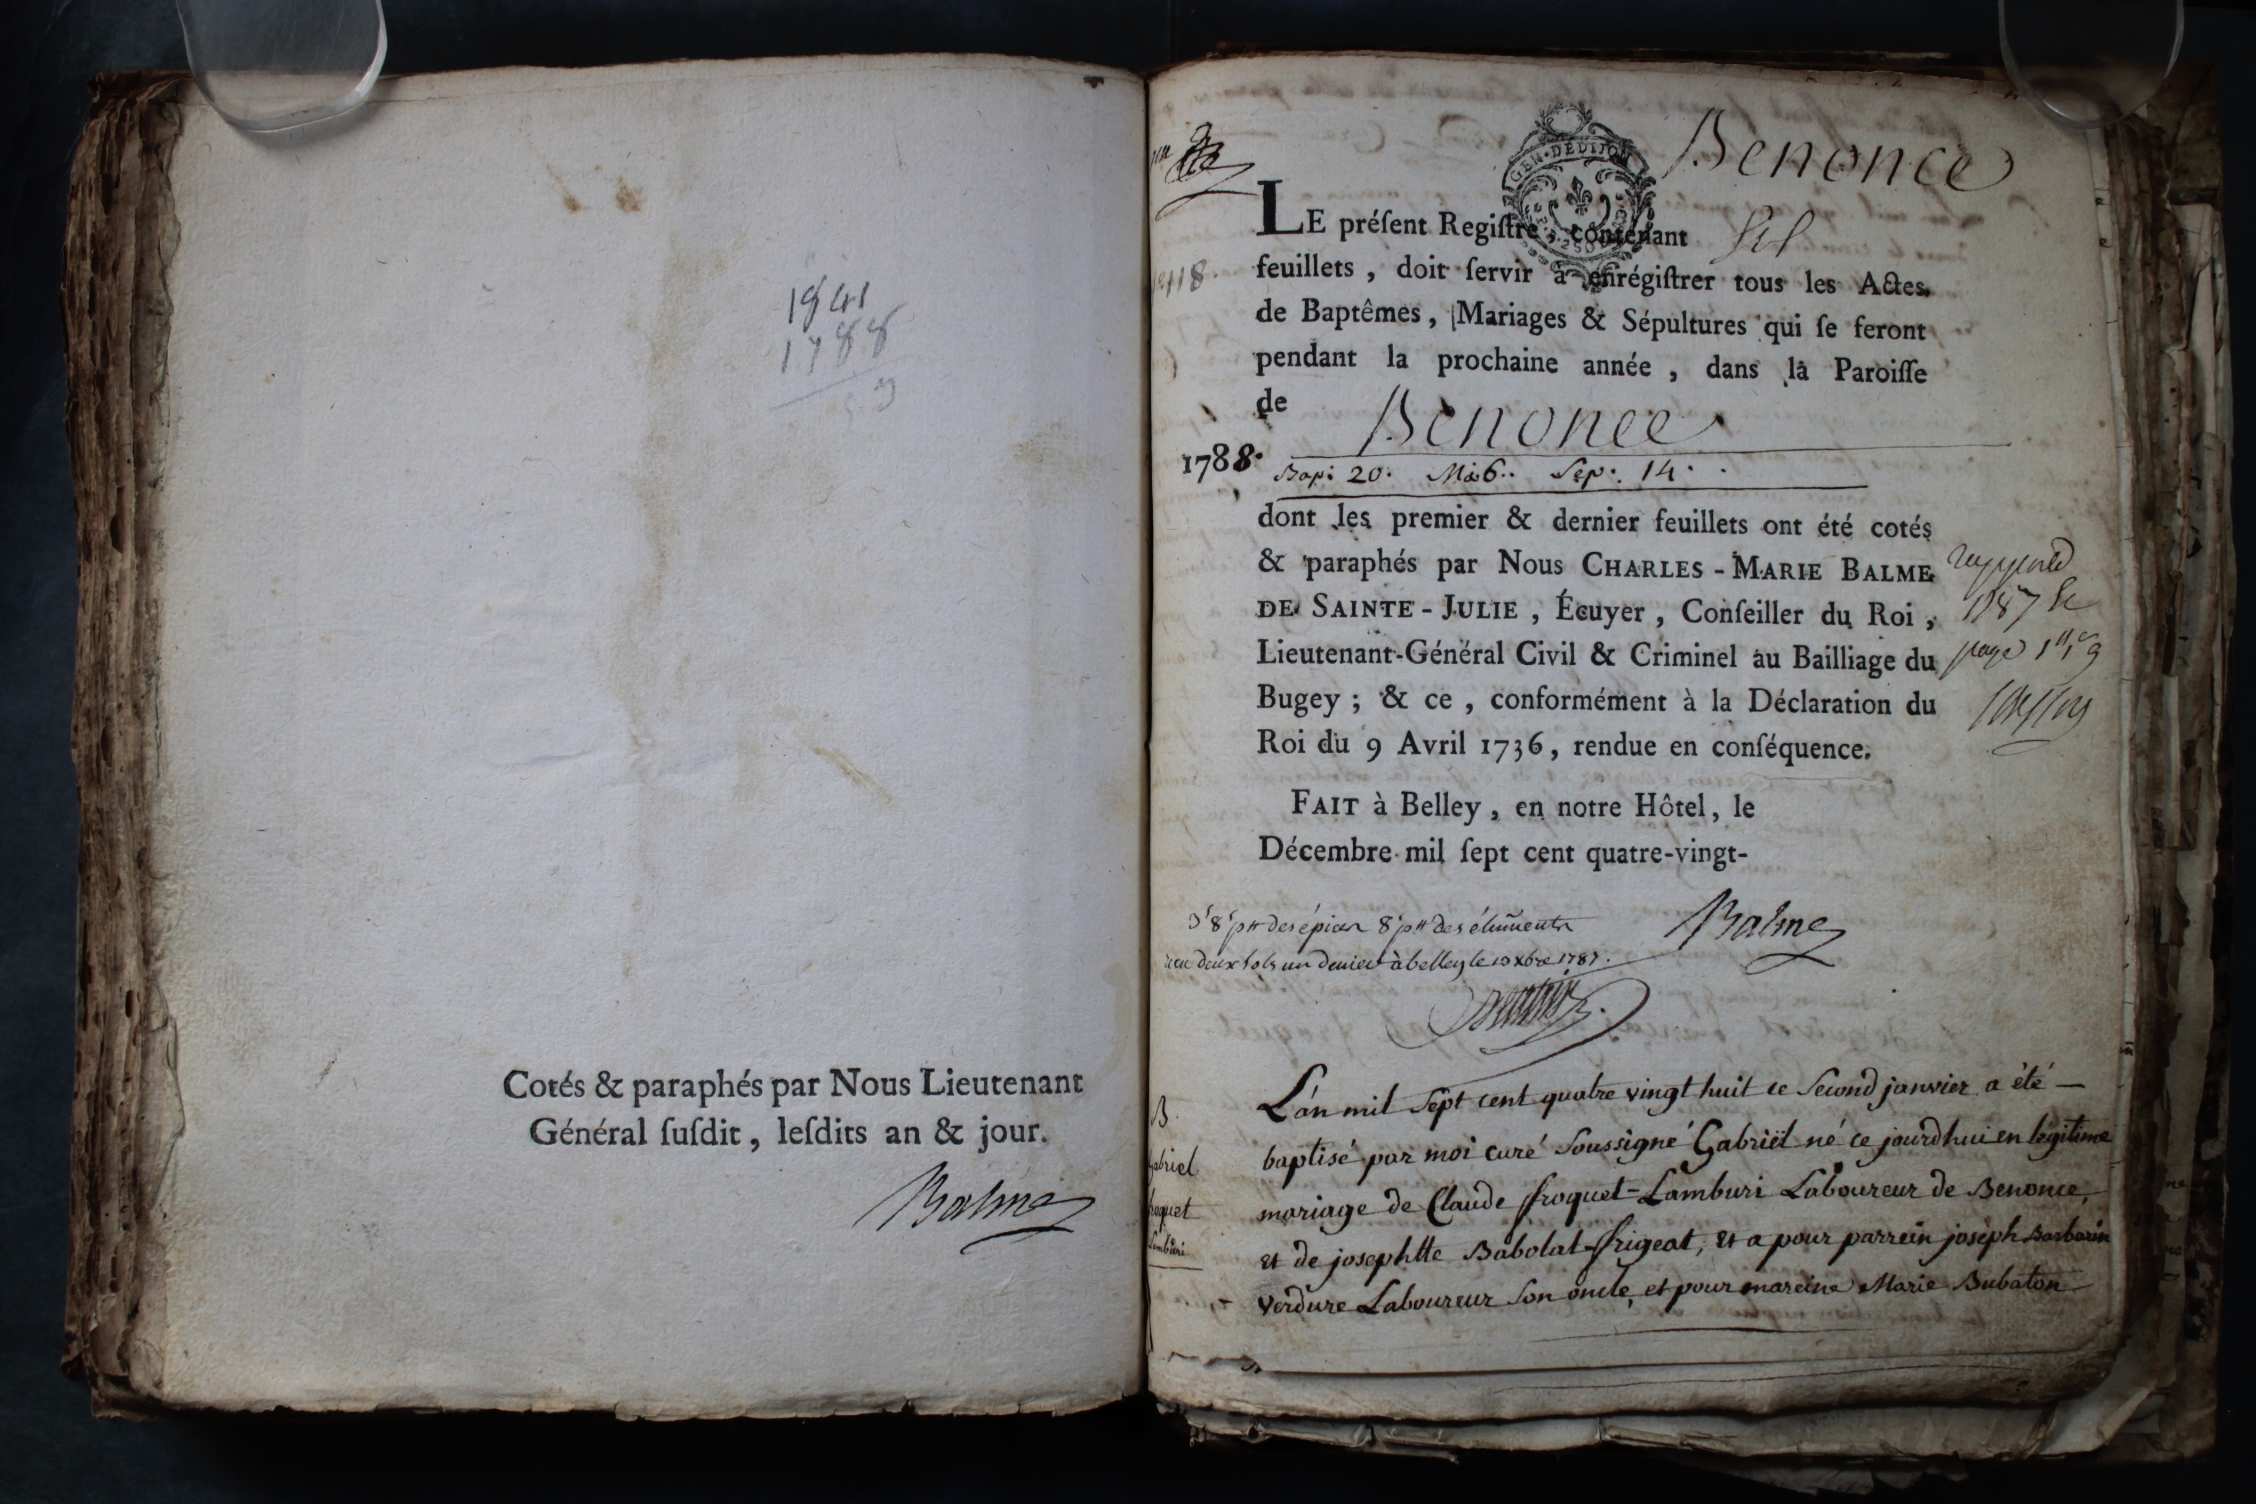 1941
1788
Cotés & paraphés par Nous Lieutenant
Général ſuſdit, leſdits an & jour.
Balme
Benonce
GEN·DEDIJON
LE préſent Regiſtre, contenant
feuillets, doit ſervir à enrégiſtrer tous les Actes
de Baptêmes, Mariages & Sépultures qui ſe feront
pendant la prochaine année, dans la Paroiſſe
de Benonce
1788.
Bap: 20. Ma: 6.. Sep: 14.
dont les premier & dernier feuillets ont été cotés
& paraphés par Nous CHARLES-MARIE BALME
DE SAINTE-JULIE, Écuyer, Conſeiller du Roi,
Lieutenant-Général Civil & Criminel au Bailliage du
Bugey; & ce, conformément à la Déclaration du
Roi du 9 Avril 1736, rendue en conſéquence.
1787
page
FAIT à Belley, en notre Hôtel, le
Décembre mil ſept cent quatre-vingt-
Balme
deux sols un denier à belley le 10 xbre 1787.
B.
gabriel
froquet
Lamburi
L'an mil sept cent quatre vingt huit ce second janvier a été
baptisé par moi curé soussigné Gabriël né ce jourdhui en legitime
mariage de Claude froquet=Lamburi Laboureur de Benonce,
et de josephtte Babolat-frigeat, et a pour parrein joseph Barbarin
verdure Laboureur son oncle, et pour mareine Marie Bubaton